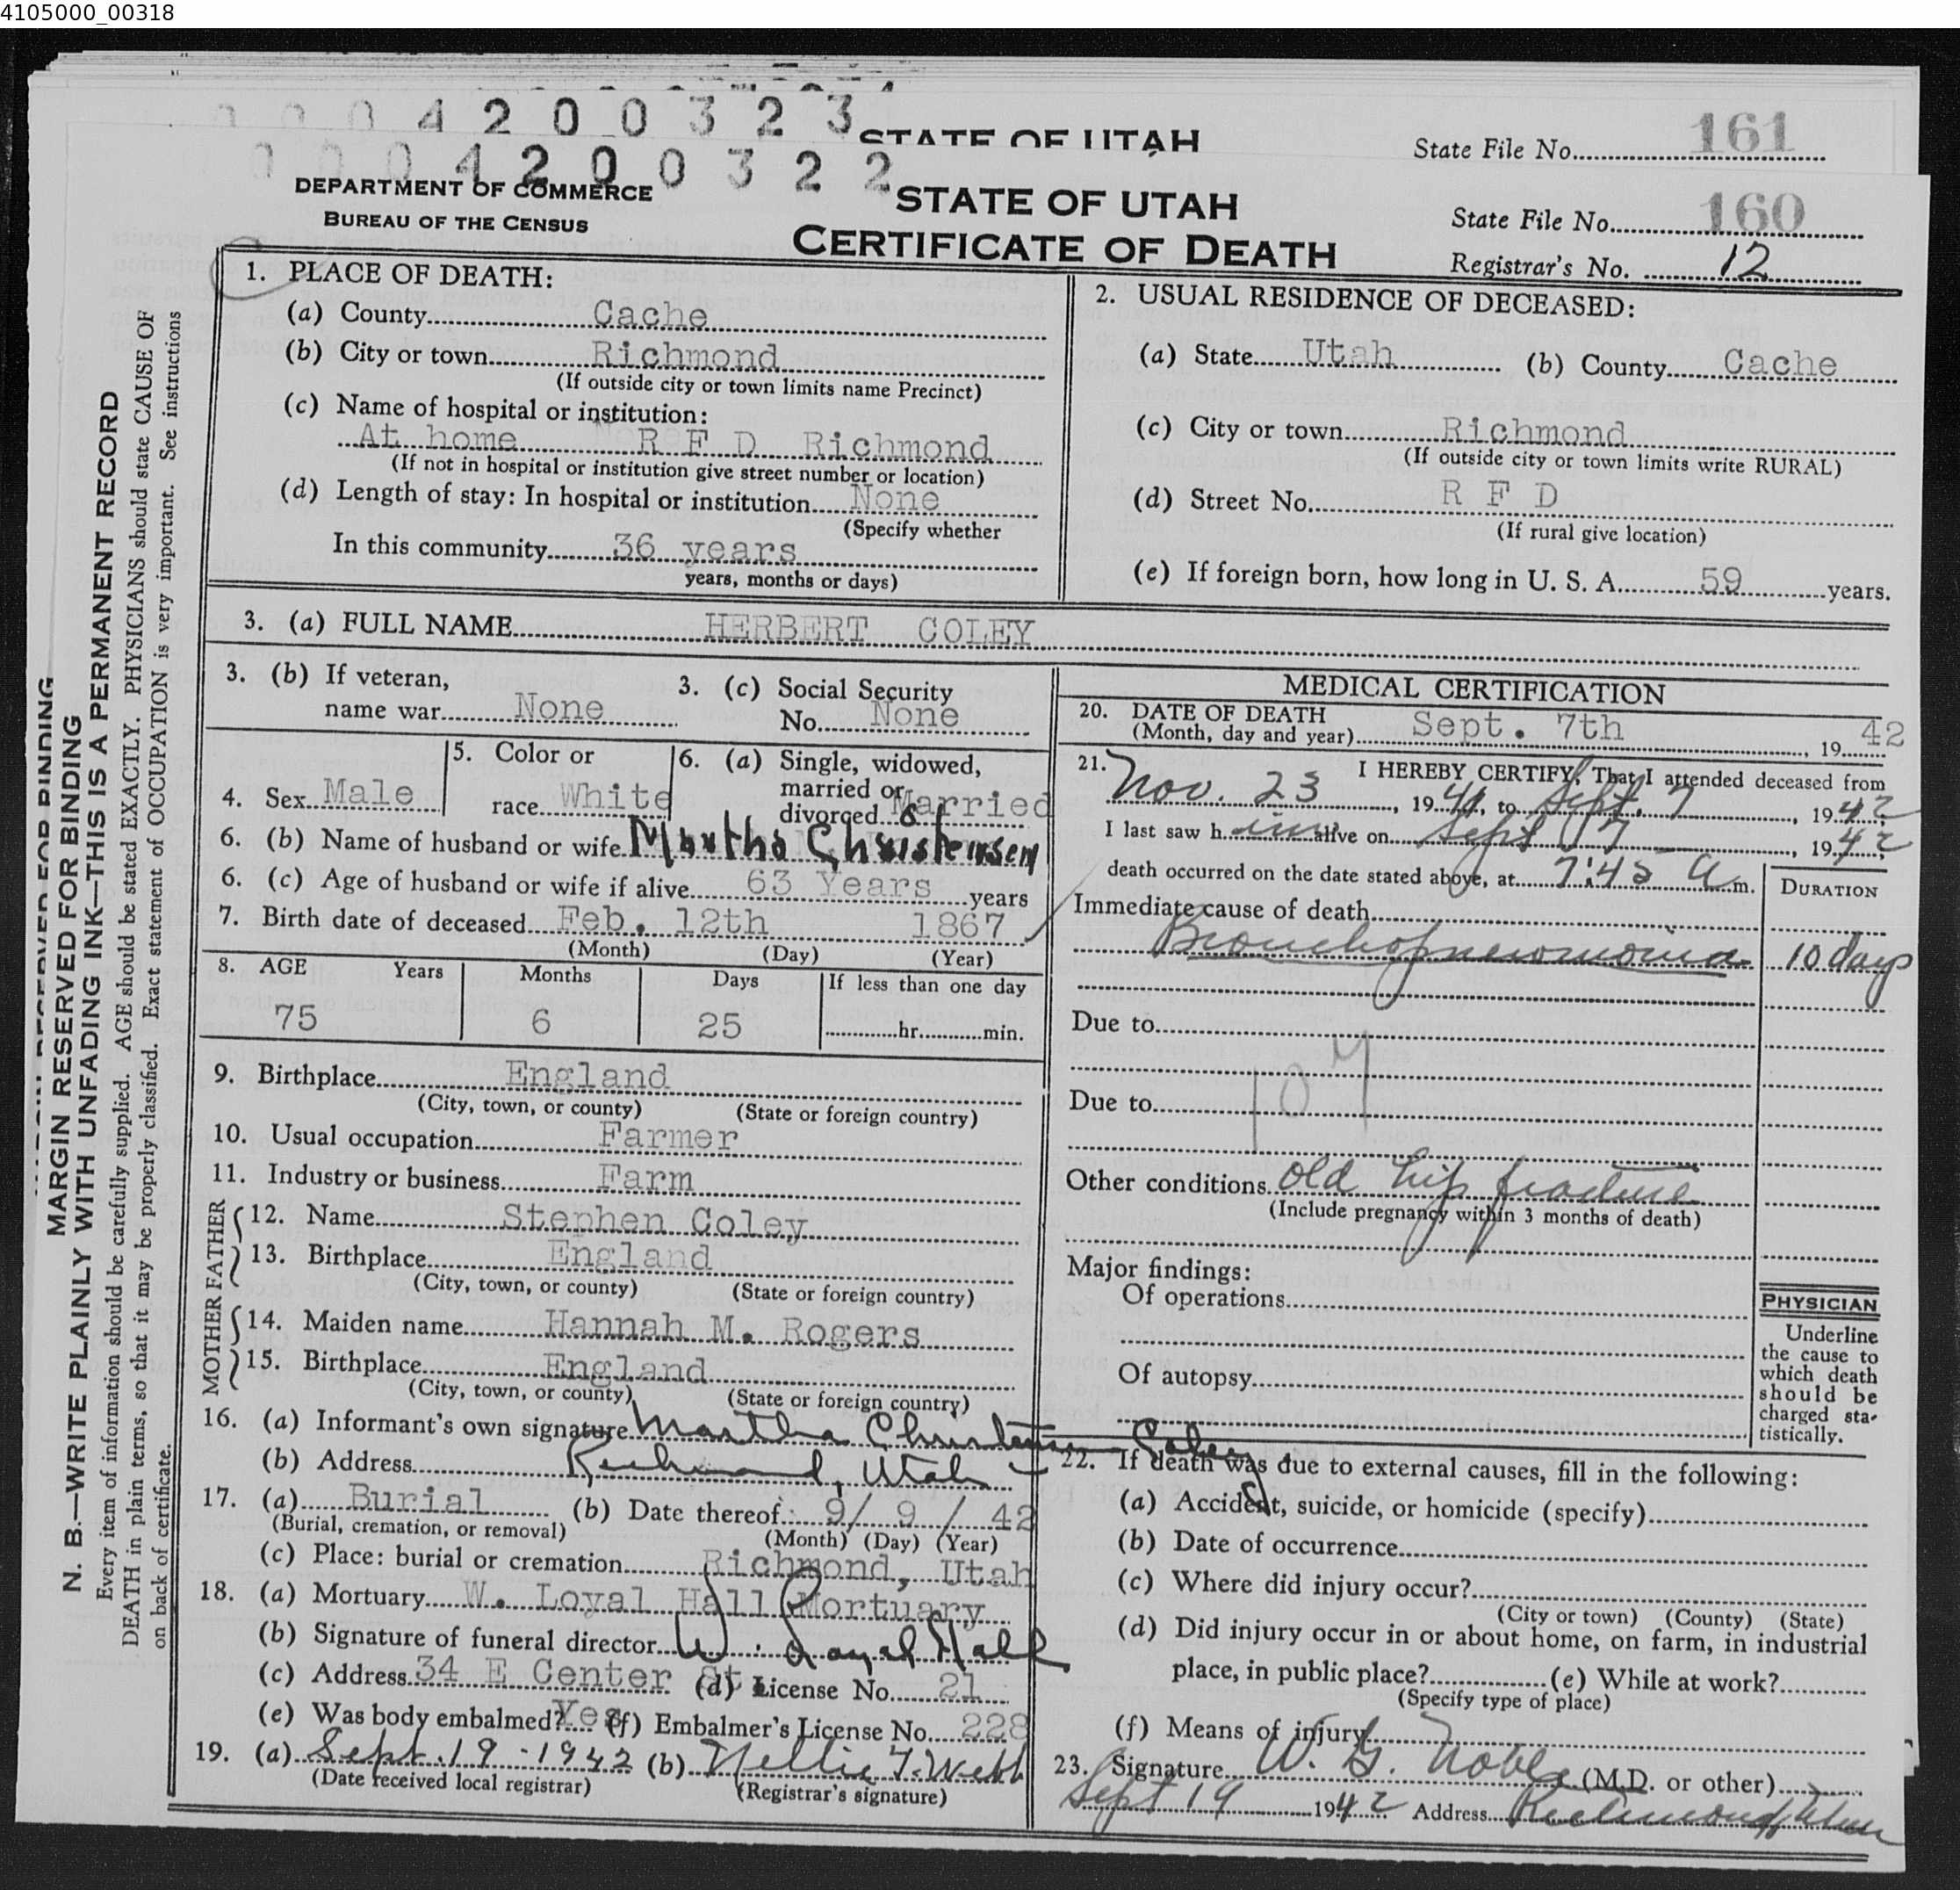 4105000_00318
0 0 0 4 2 0 0 3 2 3
STATE OF UTAH
State File No. 161
0 0 0 4 2 0 0 3 2 2
DEPARTMENT OF COMMERCE
BUREAU OF THE CENSUS
STATE OF UTAH
CERTIFICATE OF DEATH
State File No. 160
Registrar's No. 12
MARGIN RESERVED FOR BINDING
MARGIN RESERVED FOR BINDING
N. B.—WRITE PLAINLY WITH UNFADING INK—THIS IS A PERMANENT RECORD
Every item of information should be carefully supplied. AGE should be stated EXACTLY. PHYSICIANS should state CAUSE OF
DEATH in plain terms, so that it may be properly classified. Exact statement of OCCUPATION is very important. See instructions
on back of certificate.
1. PLACE OF DEATH:
(a) County Cache
(b) City or town Richmond
(If outside city or town limits name Precinct)
(c) Name of hospital or institution:
At home R F D Richmond
(If not in hospital or institution give street number or location)
(d) Length of stay: In hospital or institution None
(Specify whether
In this community 36 years
years, months or days)
2. USUAL RESIDENCE OF DECEASED:
(a) State Utah (b) County Cache
(c) City or town Richmond
(If outside city or town limits write RURAL)
(d) Street No. R F D
(If rural give location)
(e) If foreign born, how long in U. S. A. 59 years.
3. (a) FULL NAME HERBERT COLEY
3. (b) If veteran,
name war None
3. (c) Social Security
No. None
4. Sex Male
5. Color or
race White
6. (a) Single, widowed,
married or
divorced Married
6. (b) Name of husband or wife Martha Christensen
6. (c) Age of husband or wife if alive 63 Years years
7. Birth date of deceased Feb. 12th 1867
(Month) (Day) (Year)
8. AGE Years Months Days If less than one day
75 6 25 hr. min.
9. Birthplace England
(City, town, or county) (State or foreign country)
10. Usual occupation Farmer
11. Industry or business Farm
FATHER
12. Name Stephen Coley
13. Birthplace England
(City, town, or county) (State or foreign country)
MOTHER
14. Maiden name Hannah M. Rogers
15. Birthplace England
(City, town, or county) (State or foreign country)
16. (a) Informant's own signature Martha Christensen Coley
(b) Address Richmond, Utah
17. (a) Burial (b) Date thereof 9/ 9 / 42
(Burial, cremation, or removal) (Month) (Day) (Year)
(c) Place: burial or cremation Richmond, Utah
18. (a) Mortuary W. Loyal Hall Mortuary
(b) Signature of funeral director W. Loyal Hall
(c) Address 34 E Center St. (d) License No. 21
(e) Was body embalmed? Yes (f) Embalmer's License No. 228
19. (a) Sept. 19 - 1942 (b) Nellie T. Webb
(Date received local registrar) (Registrar's signature)
MEDICAL CERTIFICATION
20. DATE OF DEATH
(Month, day and year) Sept. 7th, 19 42
21. I HEREBY CERTIFY, That I attended deceased from
Nov. 23, 1941, to Sept. 7, 1942
I last saw h im alive on Sept 7, 1942
death occurred on the date stated above, at 7:45 A m.
DURATION
Immediate cause of death
Bronchopneumonia 10 days
Due to
107
Due to
Other conditions old hip fracture
(Include pregnancy within 3 months of death)
Major findings:
Of operations
Of autopsy
PHYSICIAN
Underline
the cause to
which death
should be
charged sta-
tistically.
22. If death was due to external causes, fill in the following:
(a) Accident, suicide, or homicide (specify)
(b) Date of occurrence
(c) Where did injury occur?
(City or town) (County) (State)
(d) Did injury occur in or about home, on farm, in industrial
place, in public place? (e) While at work?
(Specify type of place)
(f) Means of injury
23. Signature W. G. Noble (M.D. or other)
Sept 19 1942 Address Richmond, Utah